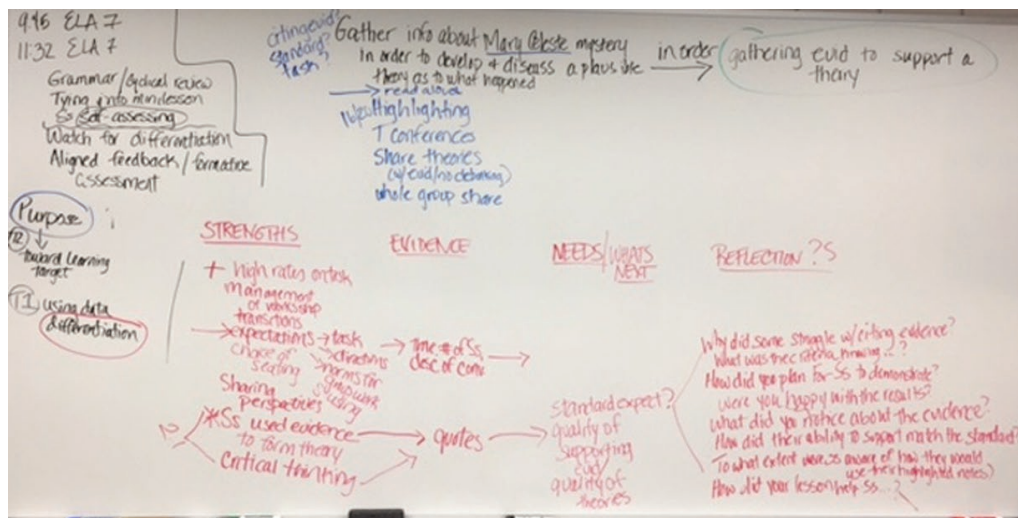 9:45 ELA 7
11:32 ELA 7
Grammar/cyclical review
Tying into minilesson
Ss self-assessing
Watch for differentiation
Aligned feedback/formative
assessment
citing evid?
standard?
task?
Gather info about Mary Celeste mystery
in order to develop & discuss a plausible
theory as to what happened
in order
gathering evid to support a
theory
read aloud
Highlighting
T conferences
Share theories
(w/evid/no debunking)
whole group share
Purpose
T2
toward learning
target
T1 using data
differentiation
STRENGTHS
+ high rates on task
management
of workshop
transitions
expectations → tasks
directions
norms for
group work
choice of
seating
Sharing
perspectives
*Ss used evidence
to form theory
critical thinking
EVIDENCE
Time # of Ss
desc of conv
quotes
NEEDS/WHATS
NEXT
standard expect?
quality of
supporting
evid/
quality of
theories
REFLECTION ?S
Why did some struggle w/citing evidence?
What was the criteria
How did you plan for Ss to demonstrate?
were you happy with the results?
What did you notice about the evidence?
How did their ability to support match the standard?
To what extent were Ss aware of how they would
use their highlighted notes?
How did your lesson help Ss...?